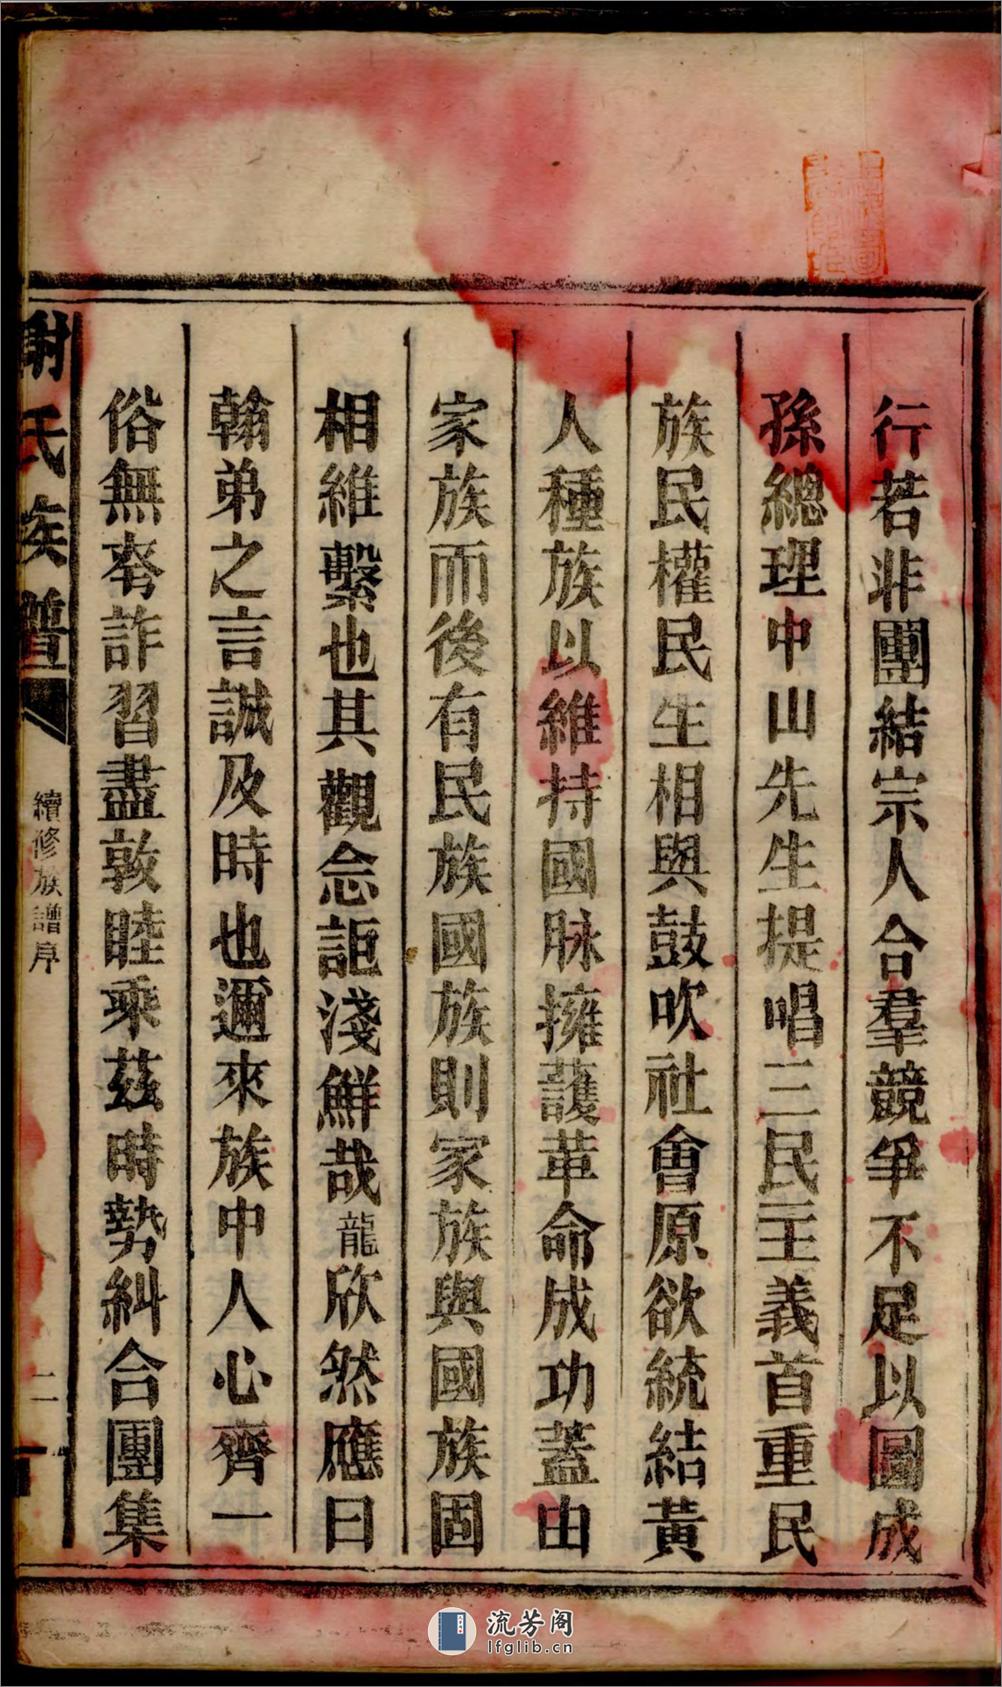 行若非團結宗人合羣競爭不足以圖成
孫總理中山先生提唱三民主義首重民
族民權民生相與鼓吹社會原欲統結黃
人種族以維持國脉擁護革命成功蓋由
家族而後有民族國族則家族與國族固
相維繫也其觀念詎淺鮮哉龍欣然應曰
翰弟之言誠及時也邇來族中人心齊一
俗無夸詐習盡敦睦乘茲時勢糾合團集
謝氏族譜
續修族譜序
二
流芳阁
lfglib.cn